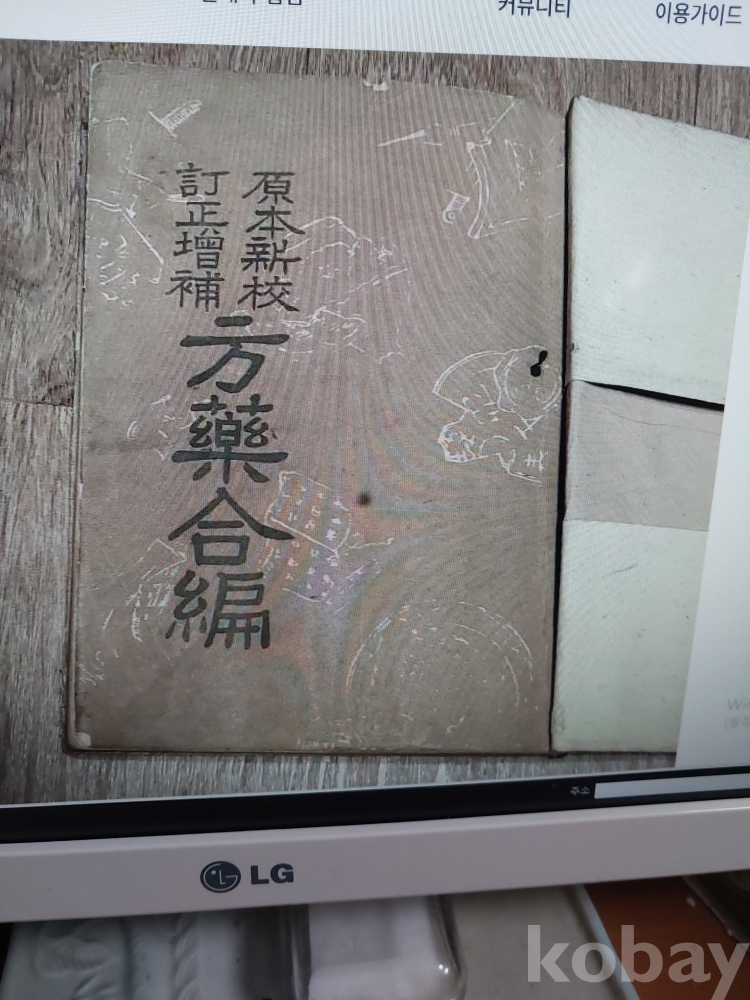 커뮤니티
이용가이드
原本新校
訂正增補
方藥合編
주소
LG
kobay